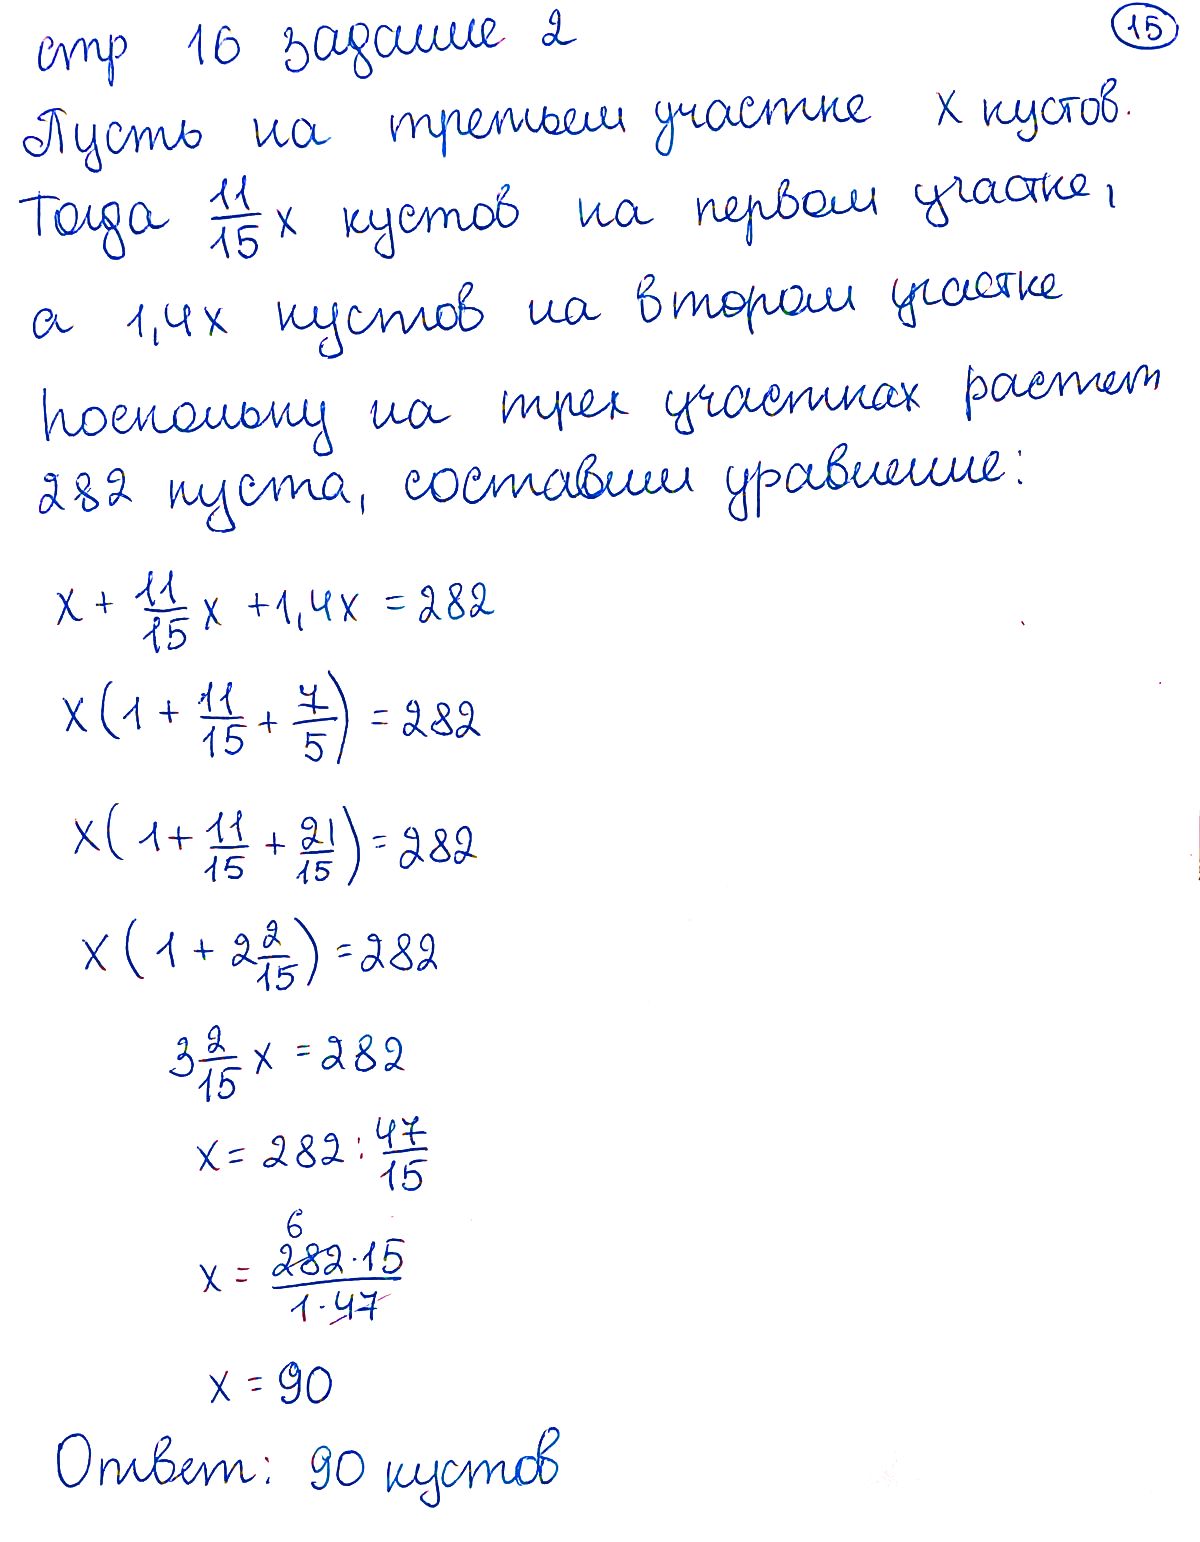 стр 16 задание 2
15
Пусть на третьем участке x кустов.
Тогда 11/15 x кустов на первом участке,
а 1,4x кустов на втором участке
Поскольку на трех участках растет
282 куста, составим уравнение:
x + 11/15 x + 1,4x = 282
x(1 + 11/15 + 7/5) = 282
x(1 + 11/15 + 21/15) = 282
x(1 + 2 2/15) = 282
3 2/15 x = 282
x = 282 : 47/15
6
x = 282·15/1·47
x = 90
Ответ: 90 кустов